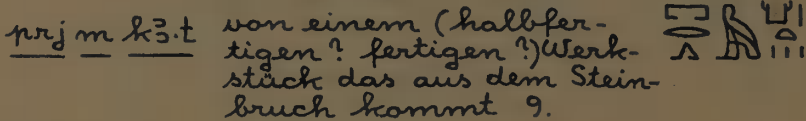 prj m kꜣ.t von einem (halbfer- 𓉐𓂋𓂻𓅓𓂓𓏥
tigen? fertigen?) Werk-
stück das aus dem Stein-
bruch kommt 9.